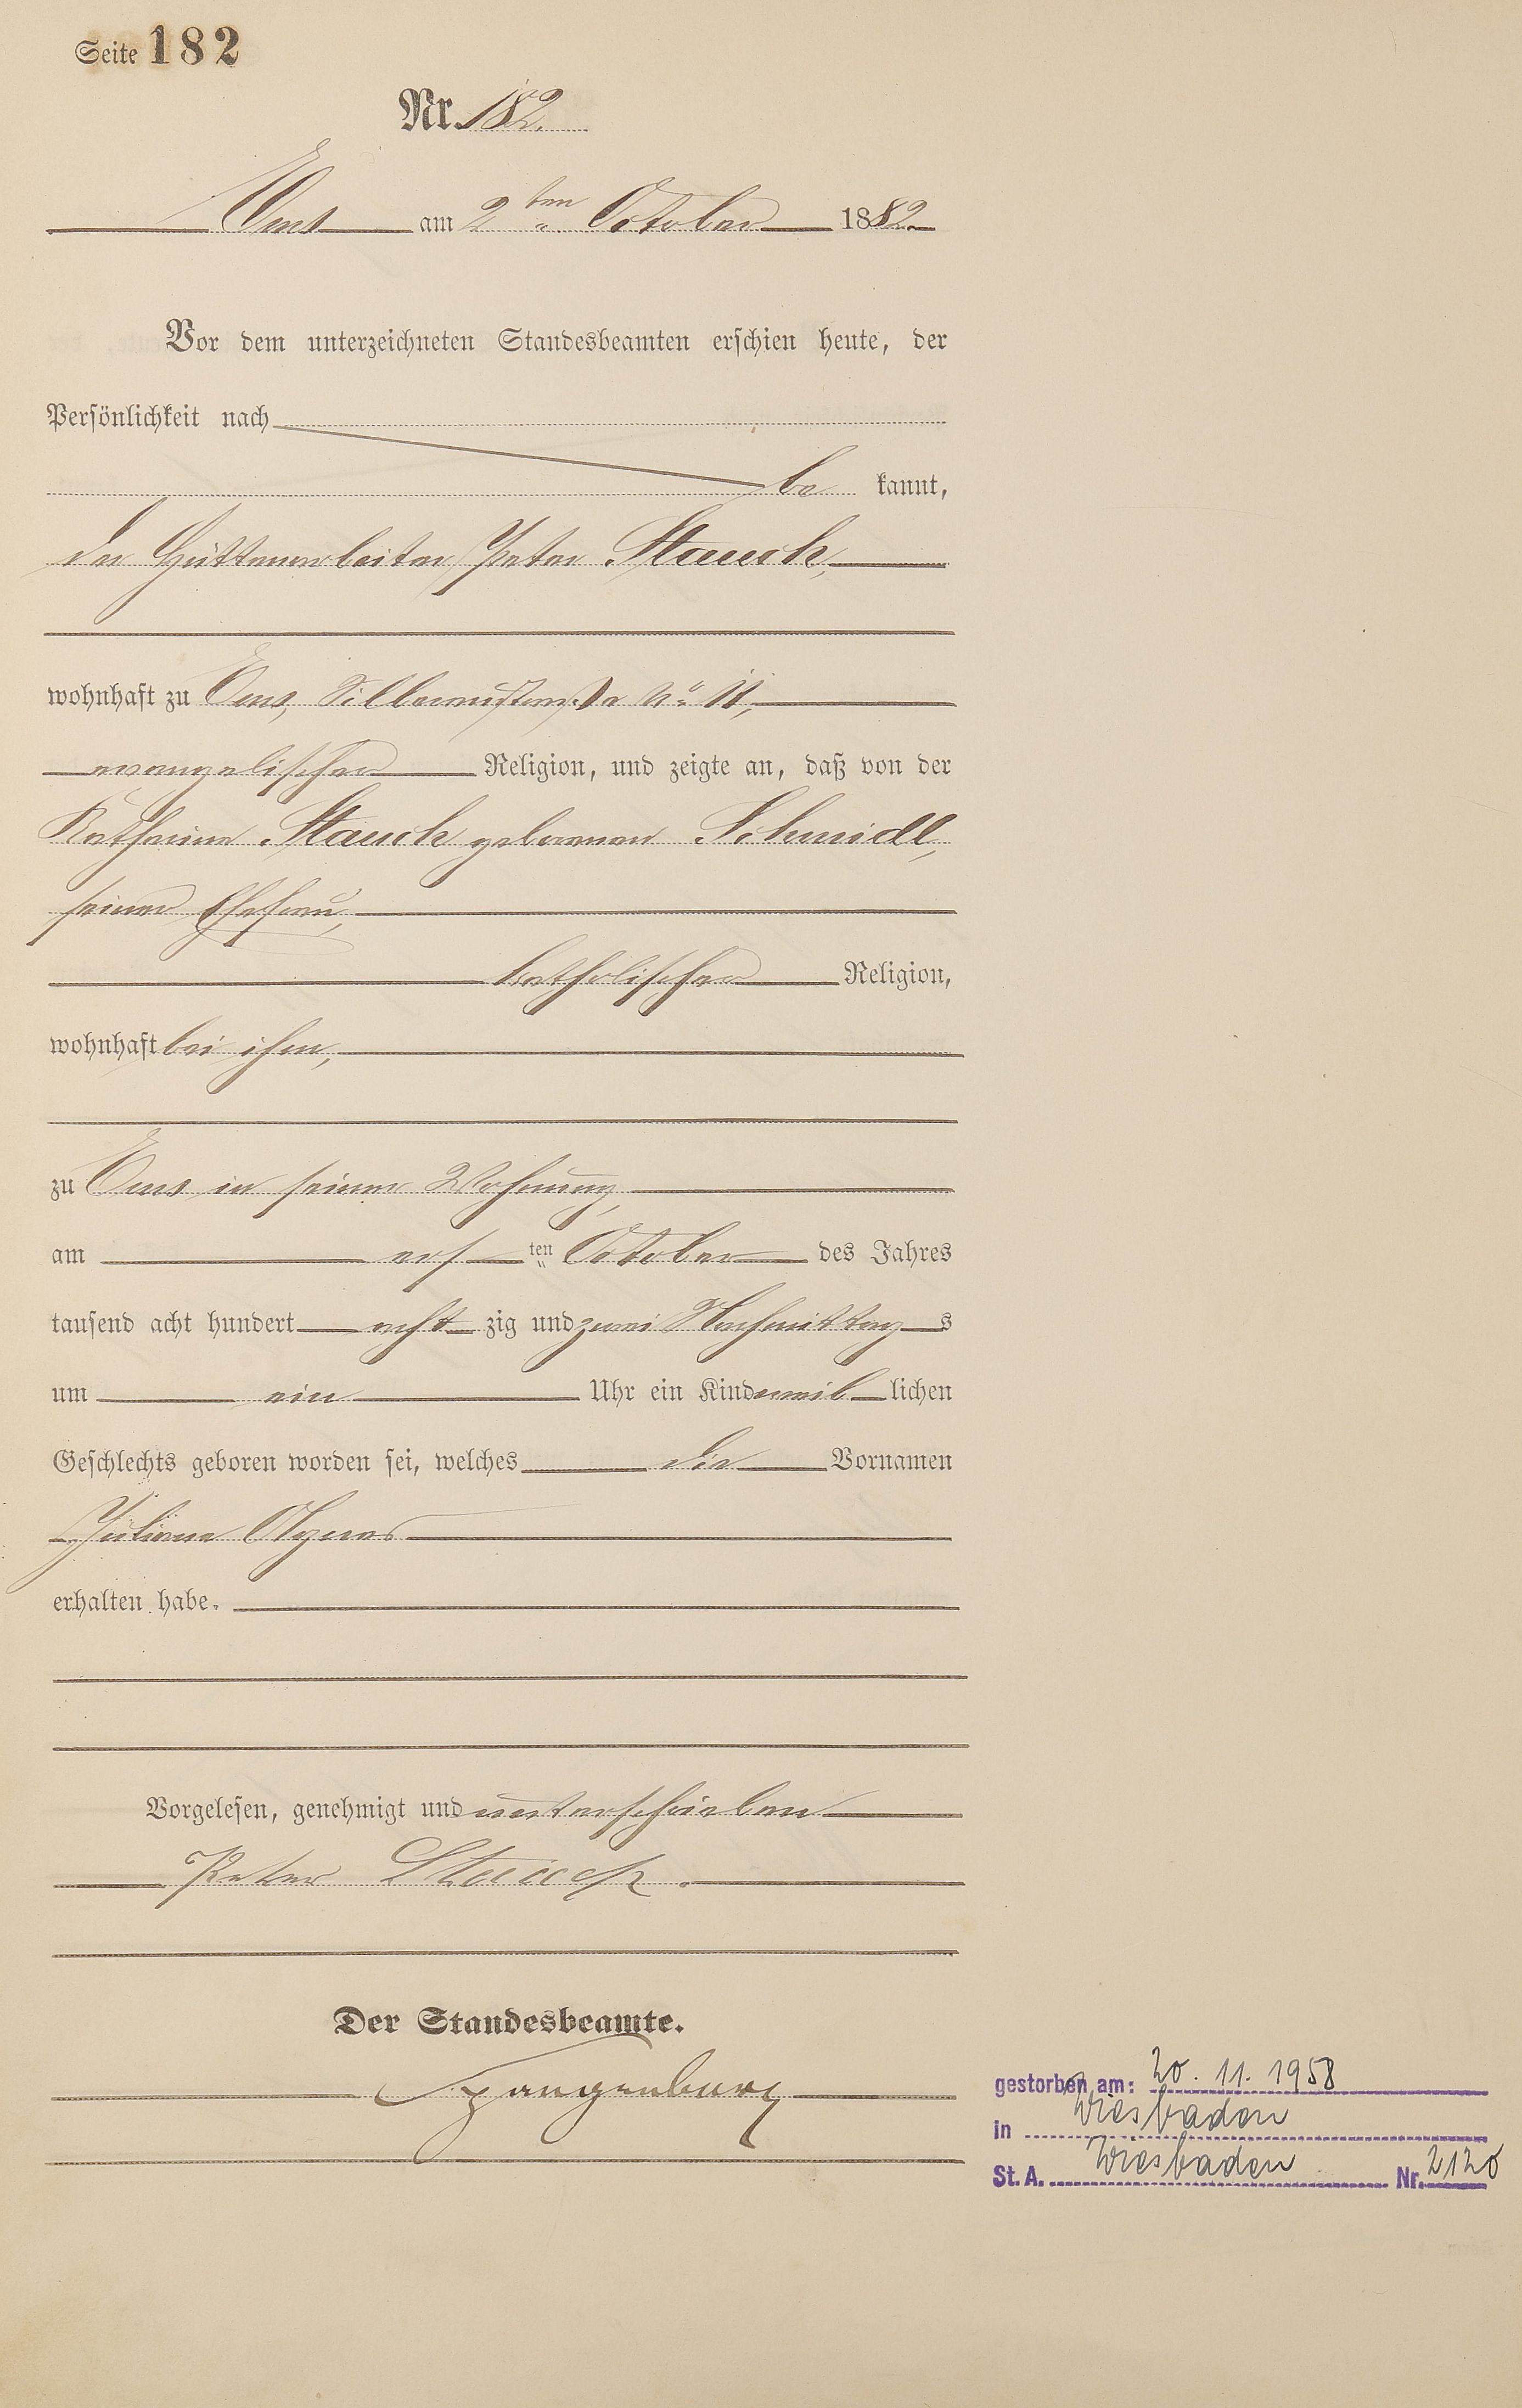 Seite 182
Nr. 182.
Ems am 2ten October 1882.
Vor dem unterzeichneten Standesbeamten erschien heute, der
Persönlichkeit nach
be kannt,
der Hüttenarbeiter Peter Stauch,
wohnhaft zu Ems, Silberaustraße No 11,
evangelischer Religion, und zeigte an, daß von der
Katharina Stauch geborenen Schmidt,
seiner Ehefrau,
katholischer Religion,
wohnhaft bei ihm,
zu Ems in seiner Wohnung,
am ers ten October des Jahres
tausend acht hundert acht zig und zwei Nachmittag s
um ein Uhr ein Kind weib lichen
Geschlechts geboren worden sei, welches die Vornamen
Juliana Agnes
erhalten habe.
Vorgelesen, genehmigt und unterschrieben
Peter Stauch.
Der Standesbeamte.
Spangenberg
gestorben am: 20. 11. 1958
in Wiesbaden
St. A. Wiesbaden Nr. 2120